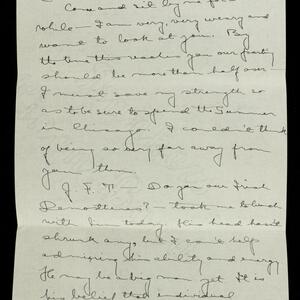 Come and sit by me for a
while — I am very, very weary and
want to look at you. By
the time this reaches you our party
should be more than half over —
I must save my strength so
as to be sure to spend the Summer
in Chicago. I couldn't think
of being so very far away from
you then
J. F. T — Do you our Irish
Demosthenes? — took me to lunch
with him today. His head hasn't
shrunk any, but I couldn't help
admiring his ability and energy
He may be a big man yet. It is
his belief that individual